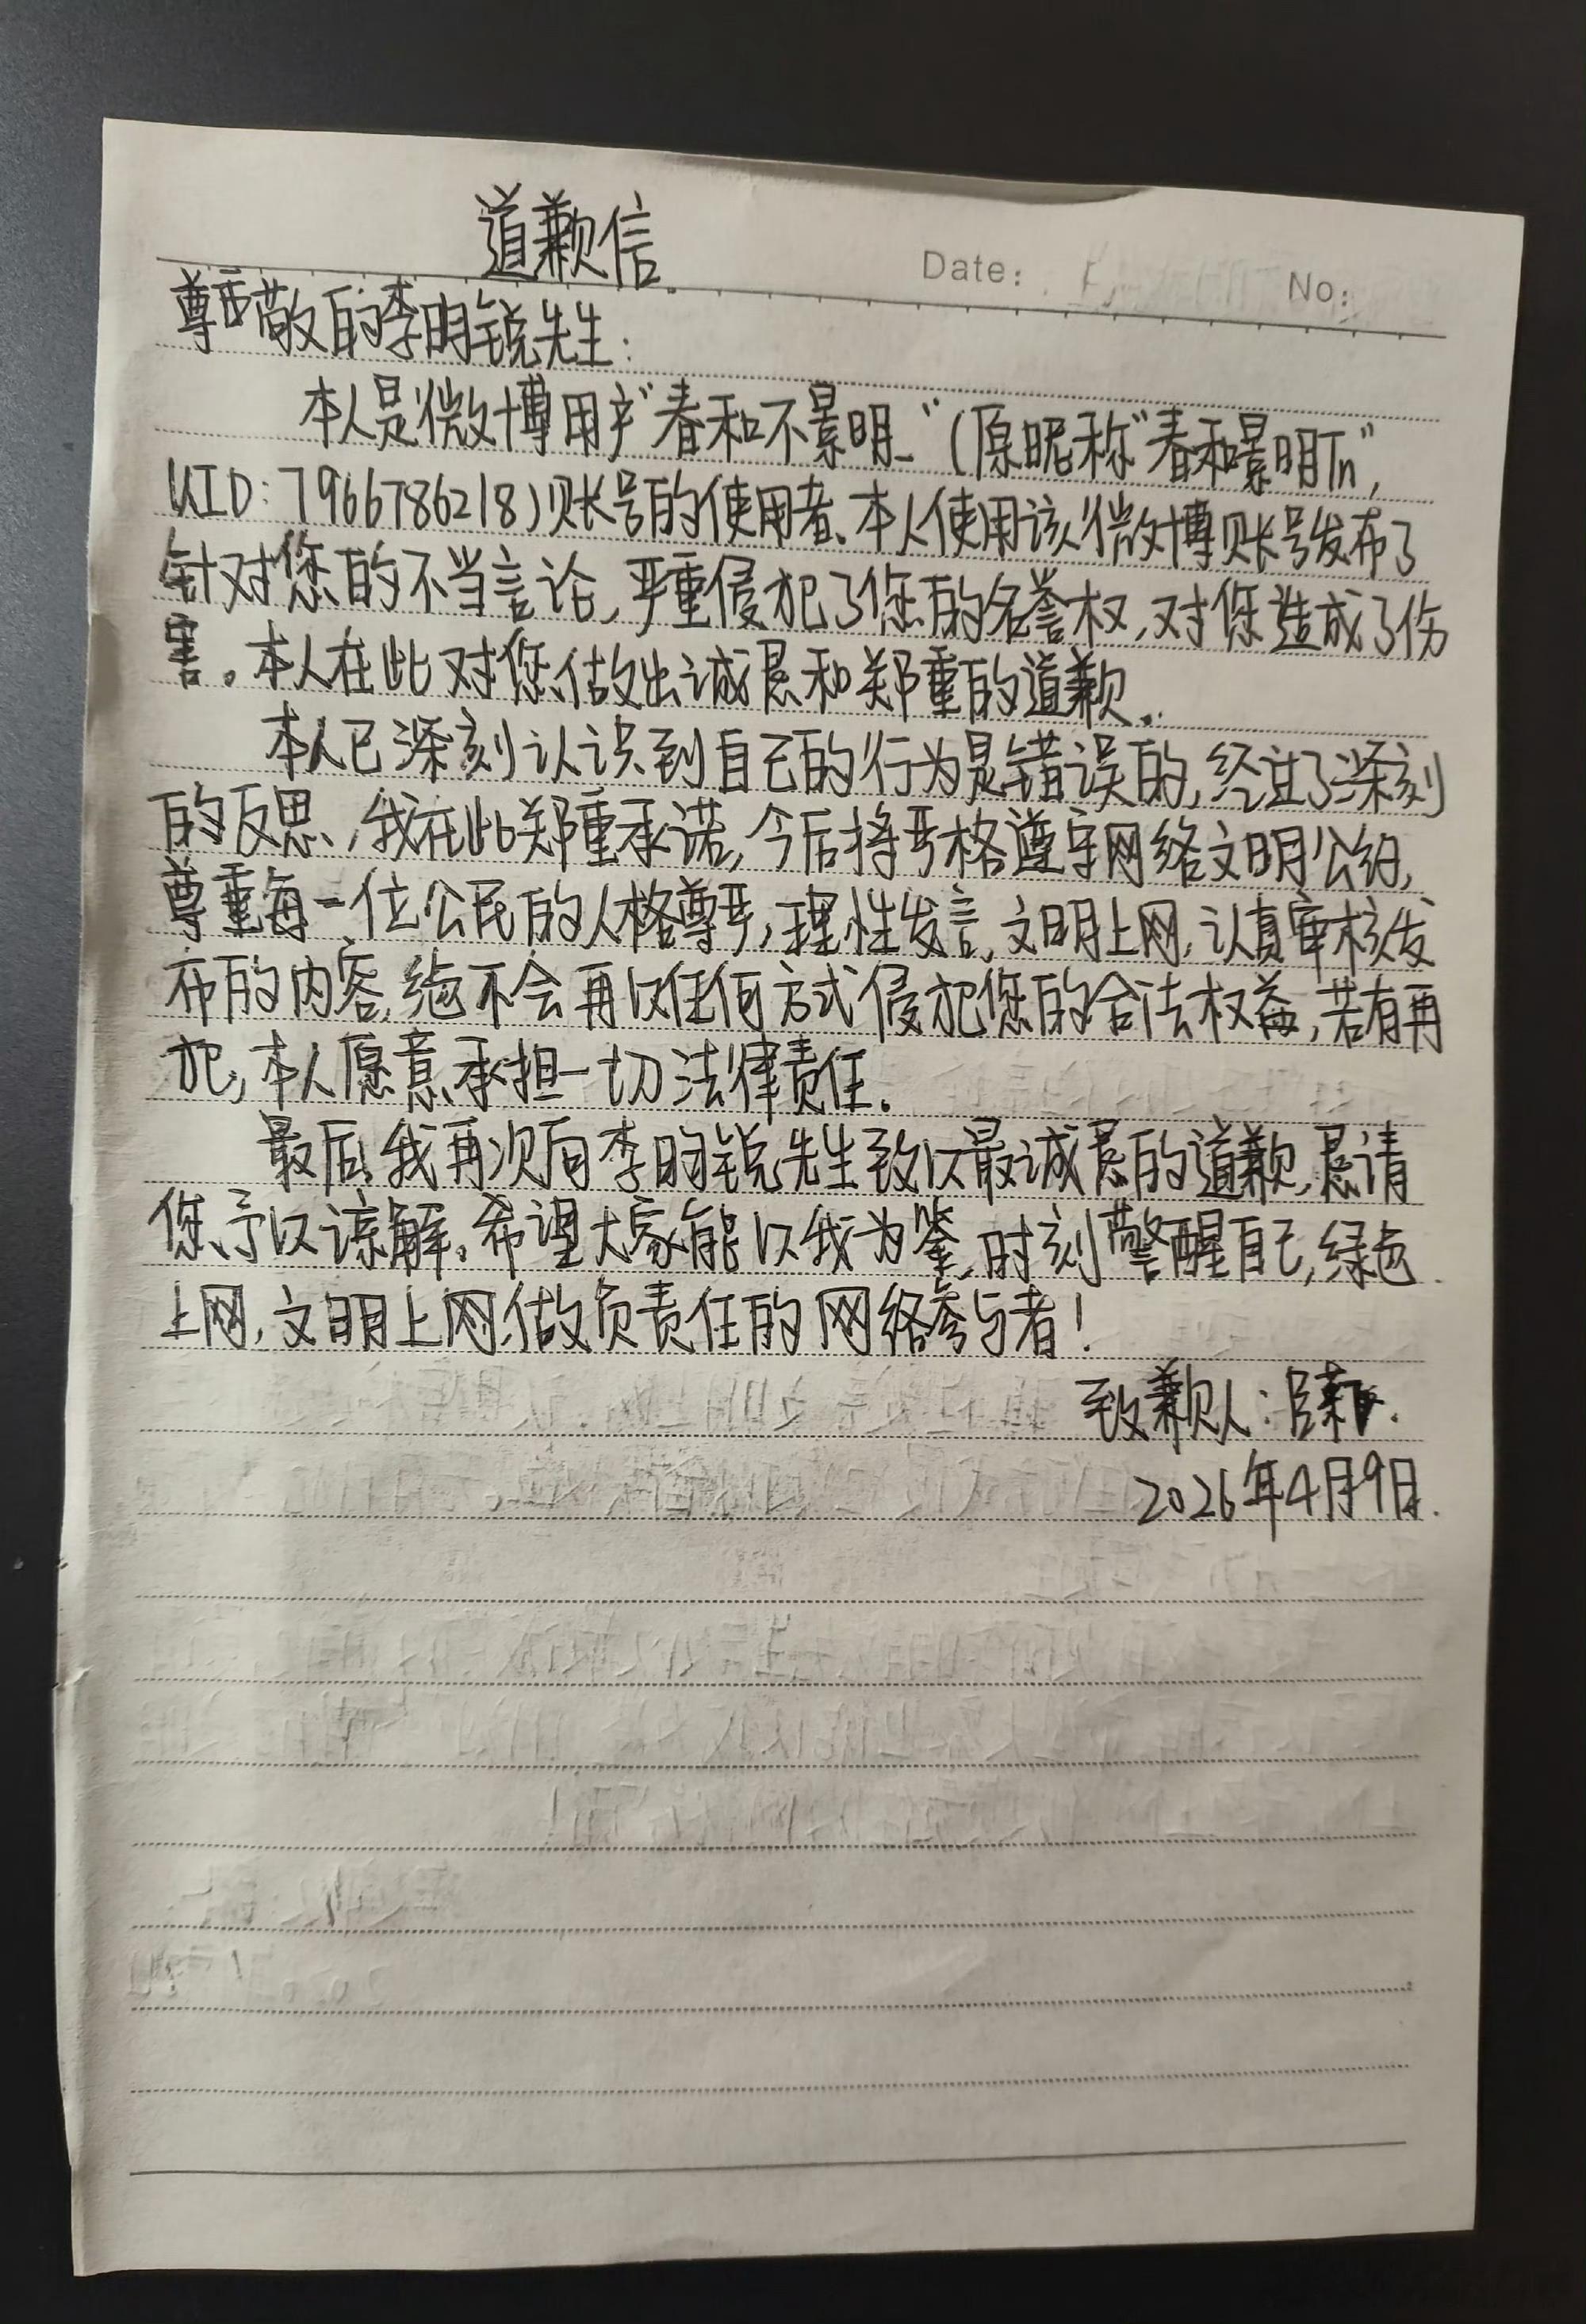 道歉信.
Date: No:
尊敬的李昀锐先生:
本人是微博用户"春和不景明_"(原昵称"春和景明Tn",
UID:7966786218)账号的使用者、本人使用该微博账号发布了
针对您的不当言论,严重侵犯了您的名誉权,对您造成了伤
害。本人在此对您做出诚恳和郑重的道歉.
本人已深刻认识到自己的行为是错误的,经过了深刻
的反思,我在此郑重承诺,今后将严格遵守网络文明公约,
尊重每一位公民的人格尊严,理性发言,文明上网,认真审核发
布的内容,绝不会再以任何方式侵犯您的合法权益,若有再
犯,本人愿意承担一切法律责任.
最后,我再次向李昀锐先生致以最诚恳的道歉,恳请
您予以谅解,希望大家能以我为鉴,时刻警醒自己,绿色
上网,文明上网,做负责任的网络参与者!
致歉人:
2026年4月9日.